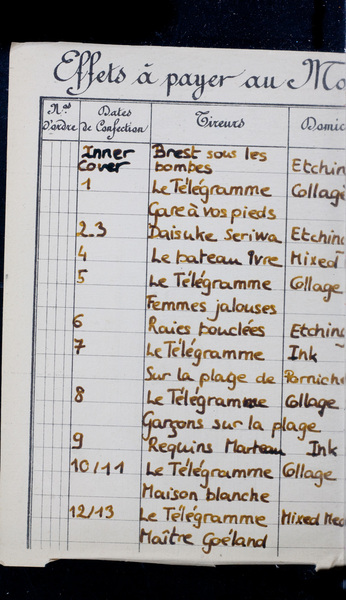 Effets à payer au Mo
Nos d'ordre Dates de Confection Tireurs Domic
Inner Cover Brest sous les bombes Etchin
1 Le Télégramme Collage
Gare à vos pieds
2.3 Daisuke Seriwa Etching
4 Le bateau Ivre Mixed
5 Le Télégramme Collage
Femmes jalouses
6 Raies bouclées Etching
7 Le Télégramme Ink
Sur la plage de Pornich
8 Le Télégramme Collage
Garçons sur la plage
9 Requins Marteau Ink
10/11 Le Télégramme Collage
Maison blanche
12/13 Le Télégramme Mixed Med
Maître Goéland